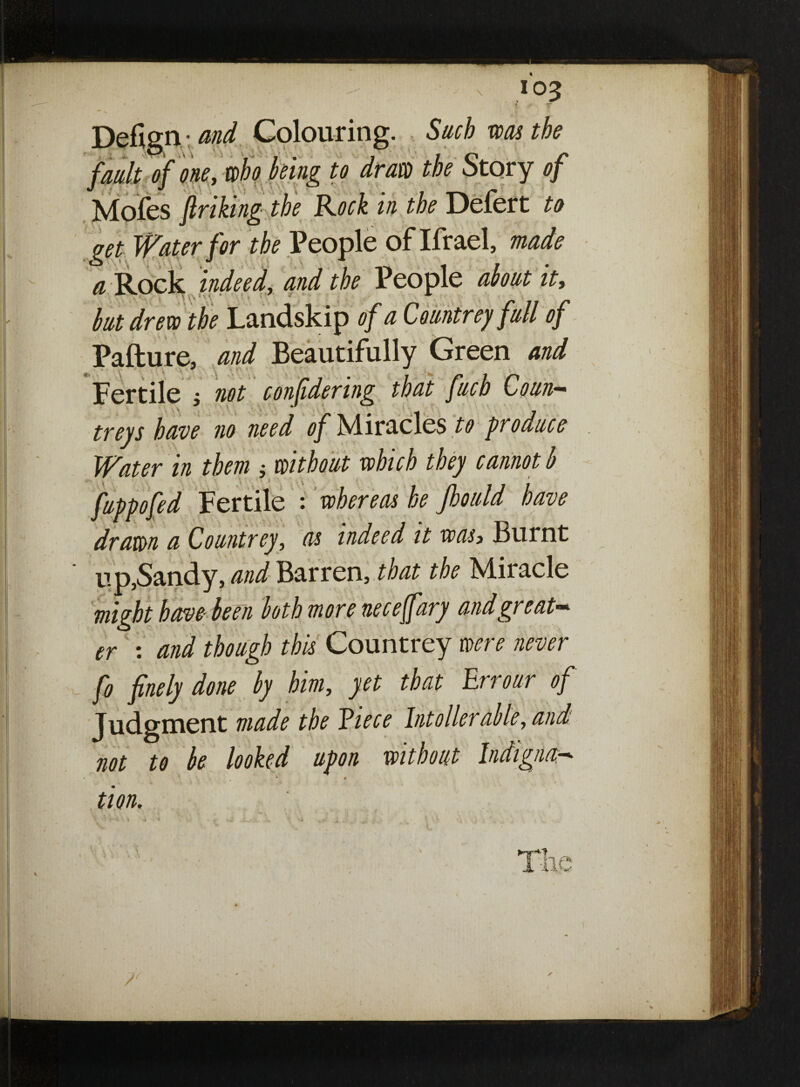 103
Deſign· and Colouring. Such was the
fault of one, who being to draw the Story of
Moſes ſtriking the Rock in the Deſert to
get Water for the People of Iſrael, made
a Rock indeed, and the People about it,
but drew the Landskip of a Countrey full of
Paſture, and Beautifully Green and
Fertile ; not conſidering that ſuch Coun-
treys have no need of Miracles to produce
Water in them ; without which they cannot b
ſuppoſed Fertile : whereas he ſhould have
drawn a Countrey, as indeed it was, Burnt
up,Sandy, and Barren, that the Miracle
might have been both more neceſſary and great-
er : and though this Countrey were never
ſo finely done by him, yet that Errour of
Judgment made the Piece Intollerable, and
not to be looked upon without Indigna-
tion.
The